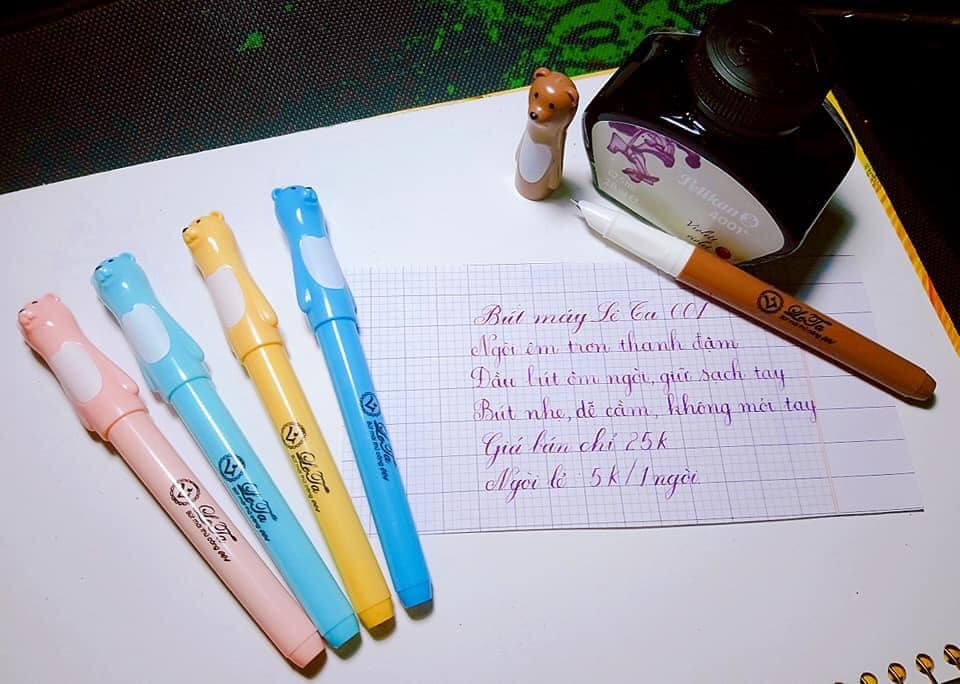 Bút máy Lê Ta 001
Ngòi êm trơn thanh đậm
Đầu bút ôm ngòi, giữ sạch tay
Bút nhẹ, dễ cầm, không mỏi tay
Giá bán chỉ 25k
Ngòi lẻ 5k/1 ngòi
Pelikan
4001
LeTa
LeTa
LeTa
LeTa
LeTa